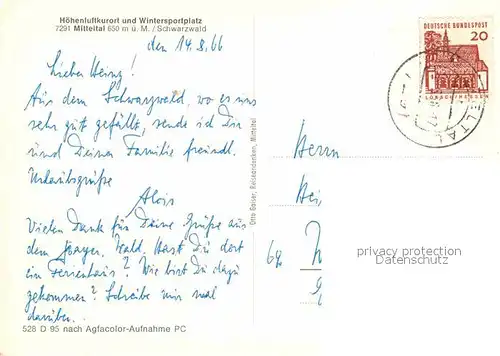 Höhenluftkurort und Wintersportplatz
7291 Mitteltal 650 m ü. M. / Schwarzwald
den 14.8.66
Lieber Heinz!
Aus dem Schwarzwald, wo es uns
sehr gut gefällt, sende ich Dir
und Deiner Familie freundl.
Urlaubsgrüße
Alois
Vielen Dank für Deine Grüße aus
dem Bayer. Wald. Hast Du dort
ein Ferienhaus? Wie bist Du dazu
gekommen? Schreibe mir mal
darüber.
528 D 95 nach Agfacolor-Aufnahme PC
Otto Gaiser, Reiseandenken, Mitteltal
DEUTSCHE BUNDESPOST
20
LORSCH/HESSEN
ELTAL
Herrn
Hei
69
privacy protection
Datenschutz